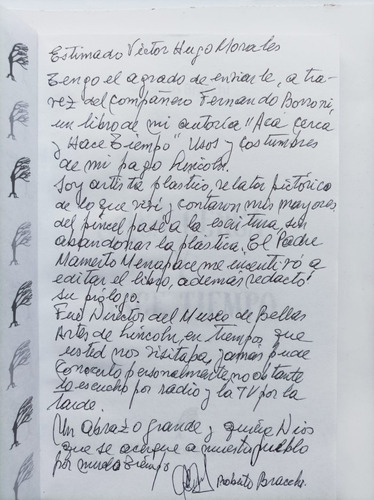 Estimado Víctor Hugo Morales
Tengo el agrado de enviarle, a tra-
vez del compañero Fernando Borroni,
un libro de mi autoría "Acá cerca
y Hace Tiempo" Usos y costumbres
de mi pago Lincoln.
Soy artista plastico, relator pictórico
de lo que viví y contaron mis mayores
del pincel pasé a la escritura sin
abandonar la plastica. El Padre
Mamerto Menapace me incentivó a
editar el libro, ademas redactó
su prólogo.
Fui Director del Museo de Bellas
Artes de Lincoln, en tiempos que
usted nos visitaba, jamas pude
conocerlo personalmente, no obstante
lo escucho por radio y la TV por la
tarde.
Un abrazo grande y quiera Dios
que se acerque a nuestro pueblo
por mucho tiempo
Roberto Bracco